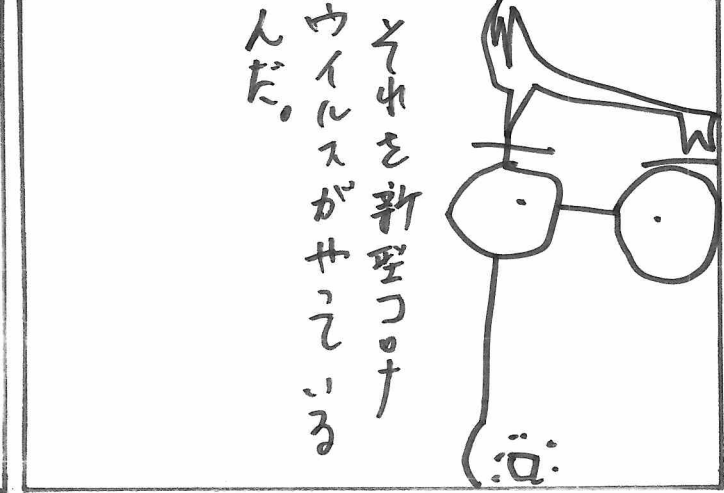 それを新型コロナ
ウイルスがやっている
んだ。